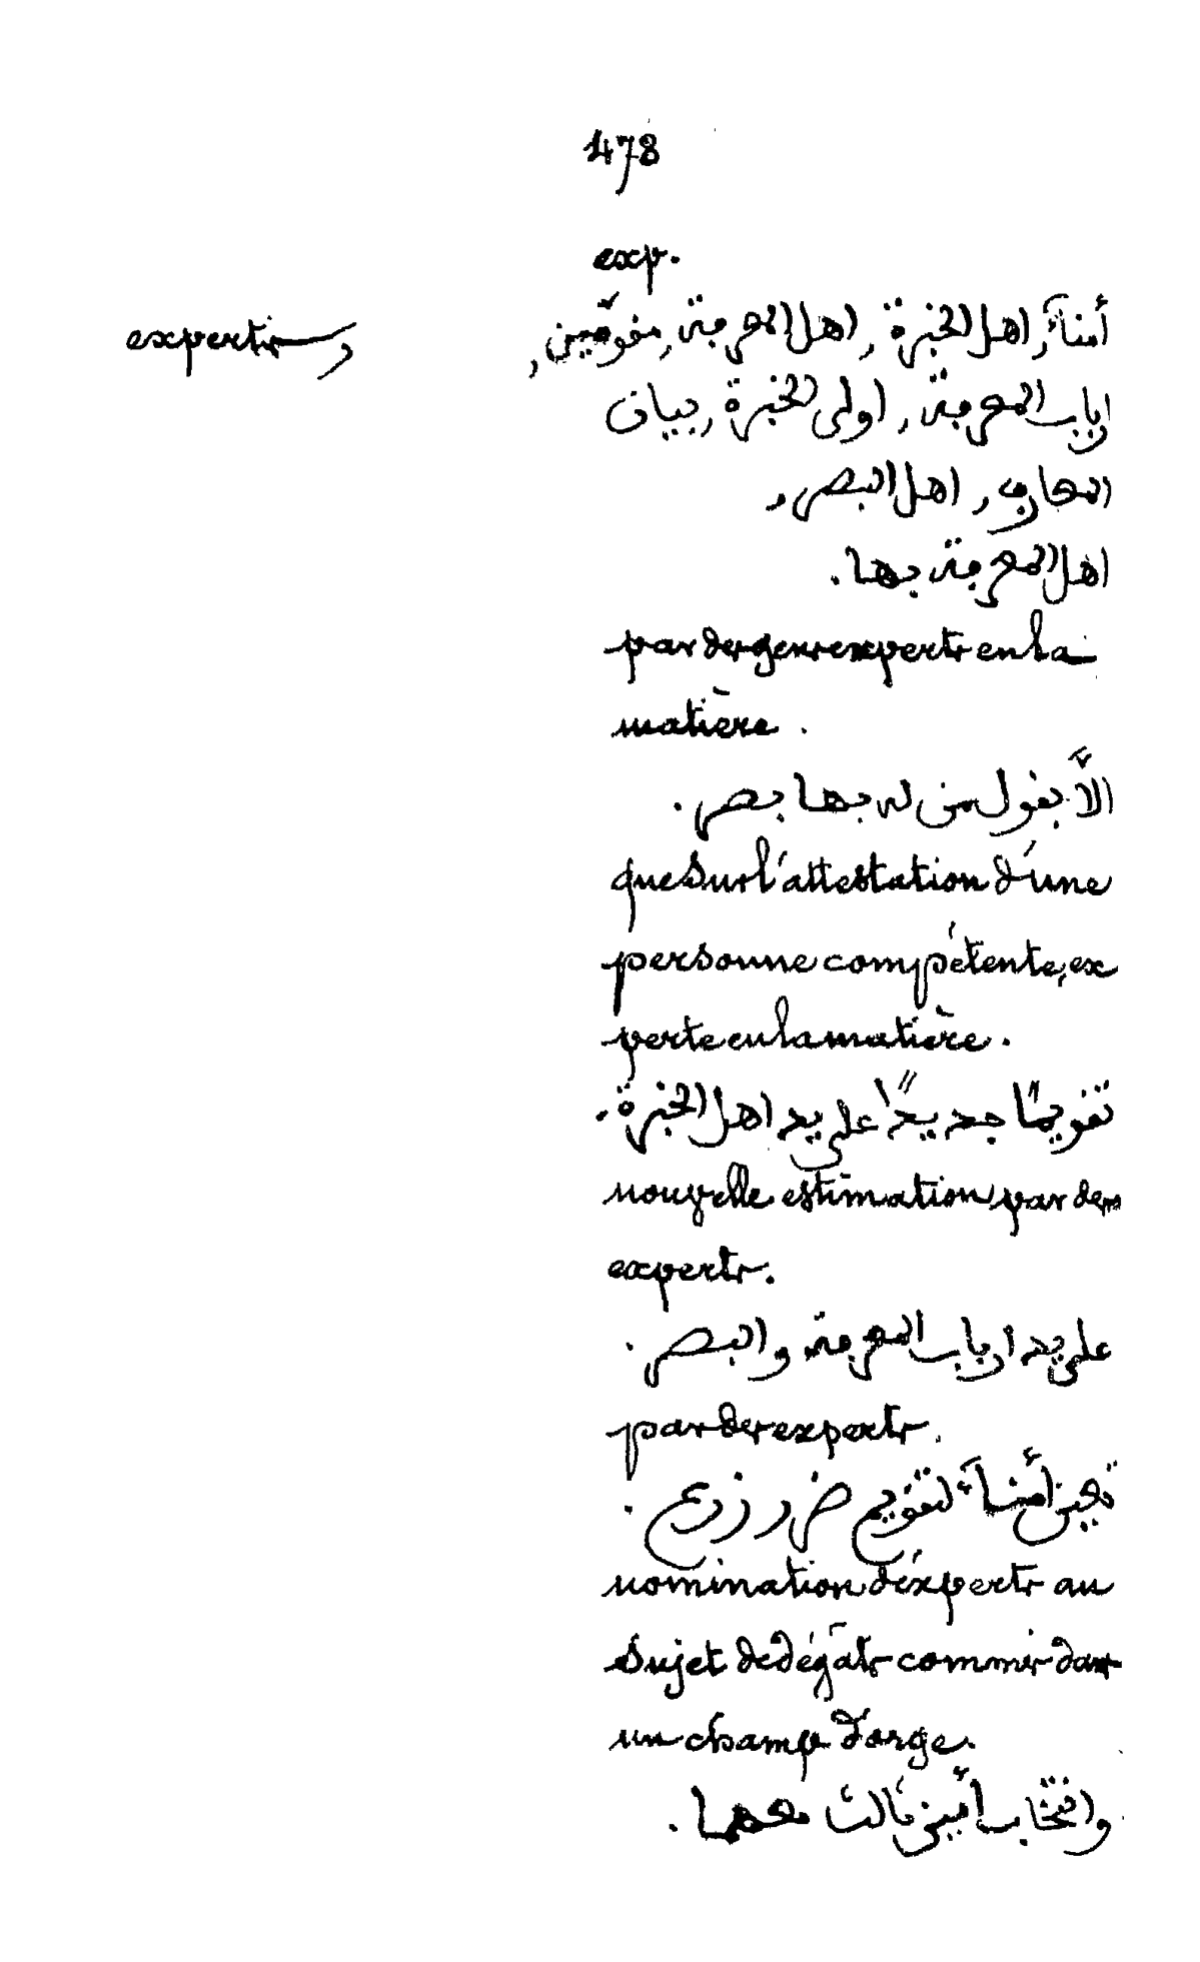 478
exp.
experts, أمناءَ, اهل الخبرة, اهل المعرفة, مقوّمين,
ارباب المعرفة, اولى الخبرة, بيان
المعارف, اهل البصر,
اهل المعرفة بها.
par des gens experts en la
matière.
الاَّ بقول من له بها بصر.
que sur l'attestation d'une
personne compétente, ex
perte en la matière.
تقويمًا جديدًا على يد اهل الخبرة.
nouvelle estimation par des
experts.
على يد ارباب المعرفة والبصر.
par des experts.
تعيين أمناءَ لتقويم ضرر زرع.
nomination d'experts au
sujet de dégâts commis dans
un champ d'orge.
وانتخاب أمين ثالث معهما.